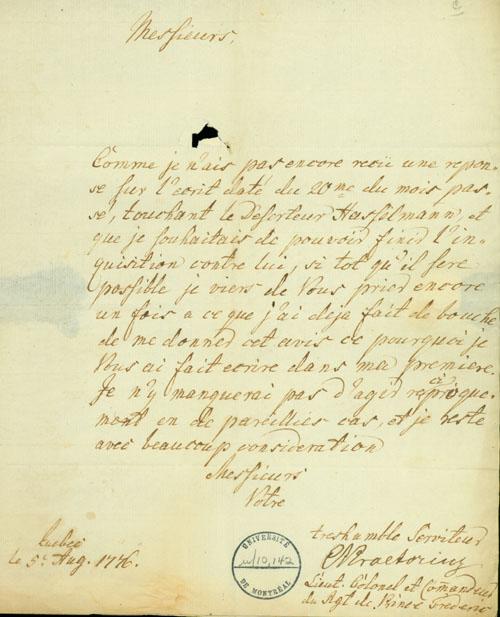 Messieurs,
Comme je n'ais pas encore reçu une repon-
se sur l'ecrit daté du 20me du mois pas-
sé, touchant le Deserteur Hasselmann, et
que je souhaitais de pouvoir finir l'in-
quisition contre lui, si tot qu'il sera
possible je viens de Vous prier encore
un fois a ce que j'ai deja fait de bouche
de me donner cet avis ce pourquoi je
Vous ai fait ecrire dans ma premiere.
Je n'y manquerai pas d'agir reciproque-
ment en de pareilles cas, et je reste
avec beaucoup consideration
Messieurs
Votre
treshumble Serviteur
Quebec
le 5e Aug. 1776.
CPraetorius
Lieut. Colonel et Comandeur
du Rgt de Prince Frederic
UNIVERSITÉ
u/10,142
DE MONTRÉAL